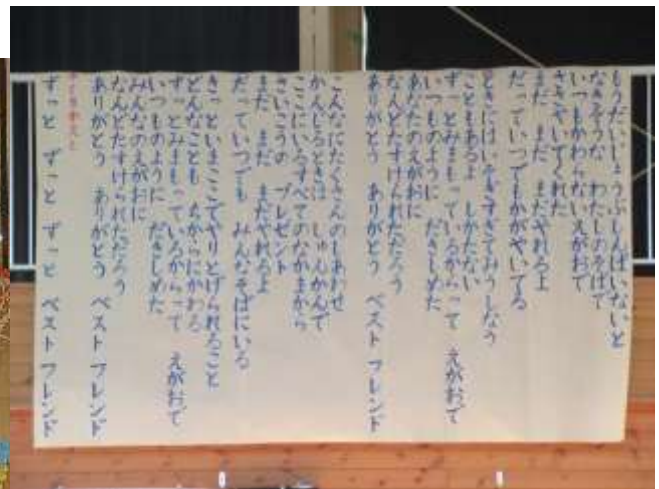 もうだいじょうぶしんぱいないと
なきそうな わたしのそばで
いつもかわらないえがおで
ささやいてくれた
まだ まだ まだやれるよ
だっていつでもかがやいてる
ときにはいそぎすぎてみうしなう
こともあるよ しかたない
ずっとみまもっているからって えがおで
いつものように だきしめた
あなたのえがおに
なんどたすけられただろう
ありがとう ありがとう ベスト フレンド
こんなにたくさんのしあわせ
かんじるときは しゅんかんで
ここにいるすべてのなかまから
さいこうの プレゼント
まだ まだ まだやれるよ
だっていつでも みんなそばにいる
きっといまここでやりとげられること
どんなことも ちからにかわる
ずっとみまもっているからって えがおで
いつものように だきしめた
みんなのえがおに
なんどたすけられただろう
ありがとう ありがとう ベスト フレンド
ずっと ずっと ずっと ベスト フレンド